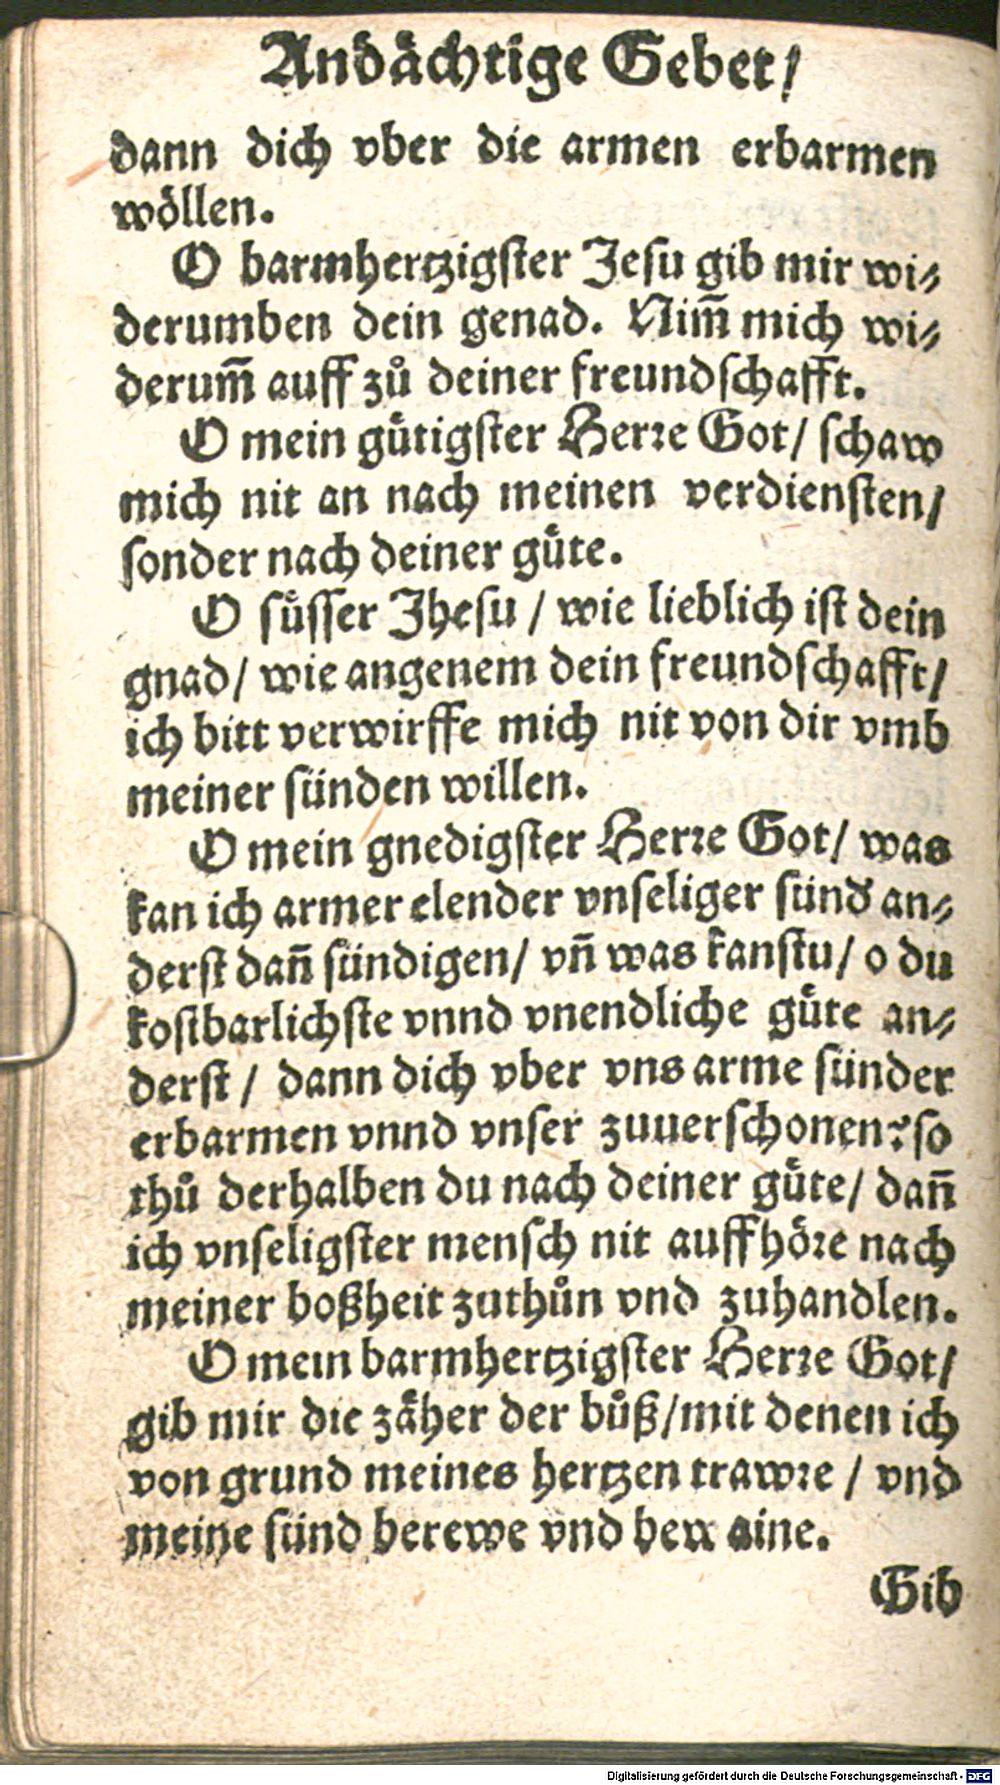 Andaͤchtige Gebet/
dann dich vber die armen erbarmen
woͤllen.
O barmhertzigster Jesu gib mir wi⸗
derumben dein genad. Nim̃ mich wi⸗
derum̃ auff zuͦ deiner freundschafft.
O mein guͤtigster Herꝛe Got/ schaw
mich nit an nach meinen verdiensten/
sonder nach deiner guͤte.
O suͤsser Jhesu / wie lieblich ist dein
gnad/ wie angenem dein freundschafft/
ich bitt verwirffe mich nit von dir vmb
meiner sünden willen.
O mein gnedigster Herꝛe Got/ was
kan ich armer elender vnseliger sünd an⸗
derst dañ sündigen/ vñ was kanstu/ o du
kostbarlichste vnnd vnendliche guͤte an⸗
derst / dann dich vber vns arme sünder
erbarmen vnnd vnser zuuerschonen? so
thuͦ derhalben du nach deiner guͤte/ dañ
ich vnseligster mensch nit auffhoͤꝛe nach
meiner boßheit zuthuͦn vnd zuhandlen.
O mein barmhertzigster Herꝛe Got/
gib mir die zaͤher der buͦß/mit denen ich
von grund meines hertzen trawꝛe / vnd
meine sünd berewe vnd aine.
Gib
Digitalisierung gefördert durch die Deutsche Forschungsgemeinschaft - DFG